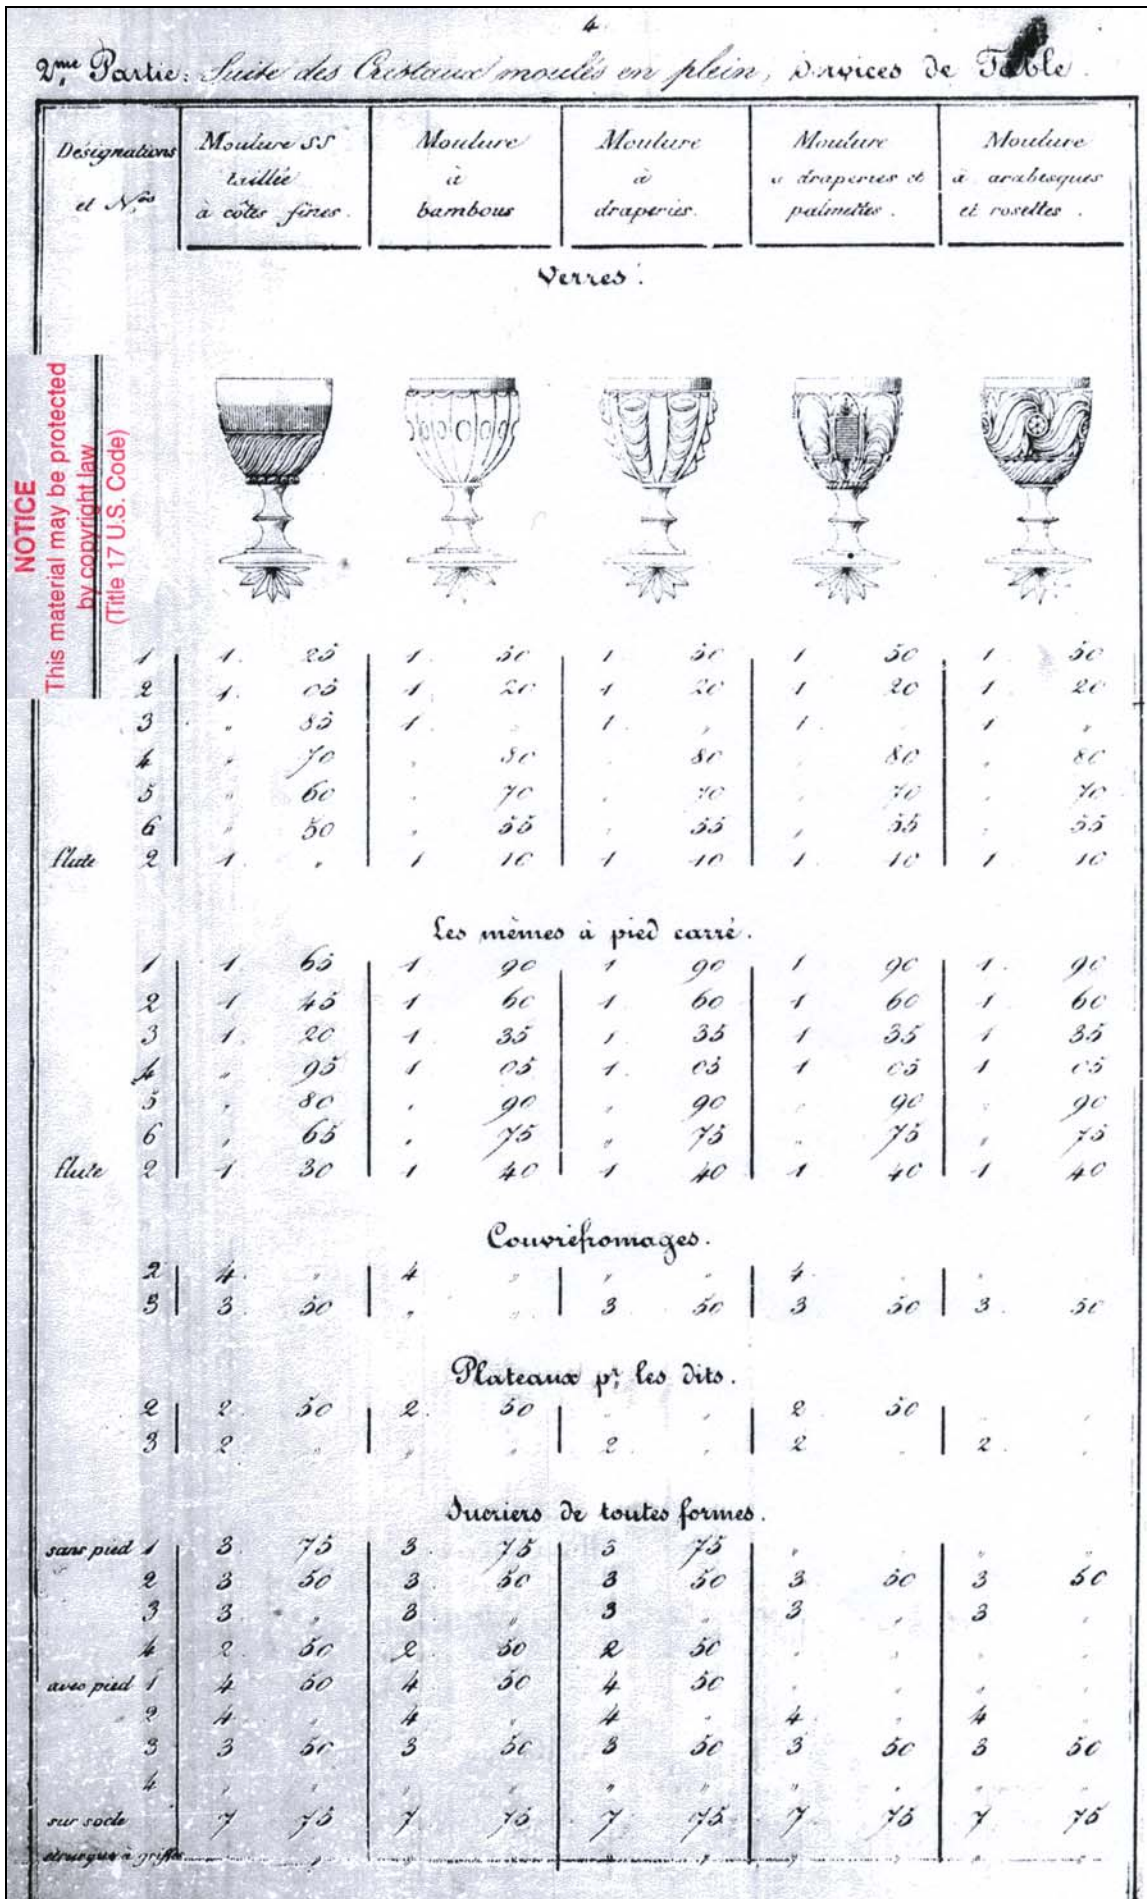 4.
2me Partie: Suite des Cristaux moulés en plein, Services de Table.
Désignations et Nos | Moulure SS taillée à côtes fines. | Moulure à bambous | Moulure à draperies. | Moulure à draperies et palmettes. | Moulure à arabesques et rosettes.
Verres.
NOTICE
This material may be protected
by copyright law
(Title 17 U.S. Code)
1 | 1. 25 | 1. 50 | 1 50 | 1 50 | 1. 50
2 | 1. 05 | 1. 20 | 1 20 | 1 20 | 1 20
3 | " 85 | 1. " | 1. " | 1. " | 1 "
4 | " 70 | " 80 | " 80 | " 80 | " 80
5 | " 60 | " 70 | " 70 | " 70 | " 70
6 | " 50 | " 55 | " 55 | " 55 | " 55
flute 2 | 1. " | 1 10 | 1 10 | 1. 10 | 1. 10
Les mêmes à pied carré.
1 | 1. 65 | 1 90 | 1 90 | 1 90 | 1. 90
2 | 1 45 | 1 60 | 1. 60 | 1 60 | 1 60
3 | 1. 20 | 1. 35 | 1. 35 | 1 35 | 1 35
4 | " 95 | 1 05 | 1. 05 | 1 05 | 1 05
5 | " 80 | " 90 | " 90 | " 90 | " 90
6 | " 65 | " 75 | " 75 | " 75 | " 75
flute 2 | 1 30 | 1 40 | 1. 40 | 1 40 | 1 40
Couvrefromages.
2 | 4. " | 4 " | " " | 4. " | " "
3 | 3. 50 | " " | 3 50 | 3 50 | 3. 50
Plateaux pr. les dits.
2 | 2. 50 | 2. 50 | " " | 2 50 | " "
3 | 2 " | " " | 2. " | 2 " | 2. "
Sucriers de toutes formes.
sans pied 1 | 3. 75 | 3. 75 | 3 75 | " " | " "
2 | 3 50 | 3. 50 | 3 50 | 3. 50 | 3 50
3 | 3. " | 3. " | 3 " | 3 " | 3 "
4 | 2. 50 | 2. 50 | 2 50 | " " | " "
avec pied 1 | 4 50 | 4 50 | 4 50 | " " | " "
2 | 4 " | 4 " | 4 " | 4 " | 4 "
3 | 3 50 | 3 50 | 3 50 | 3 50 | 3 50
4 | " " | " " | " " | " " | " "
sur socle | 7 75 | 7. 75 | 7 75 | 7 75 | 7 75
à griffes